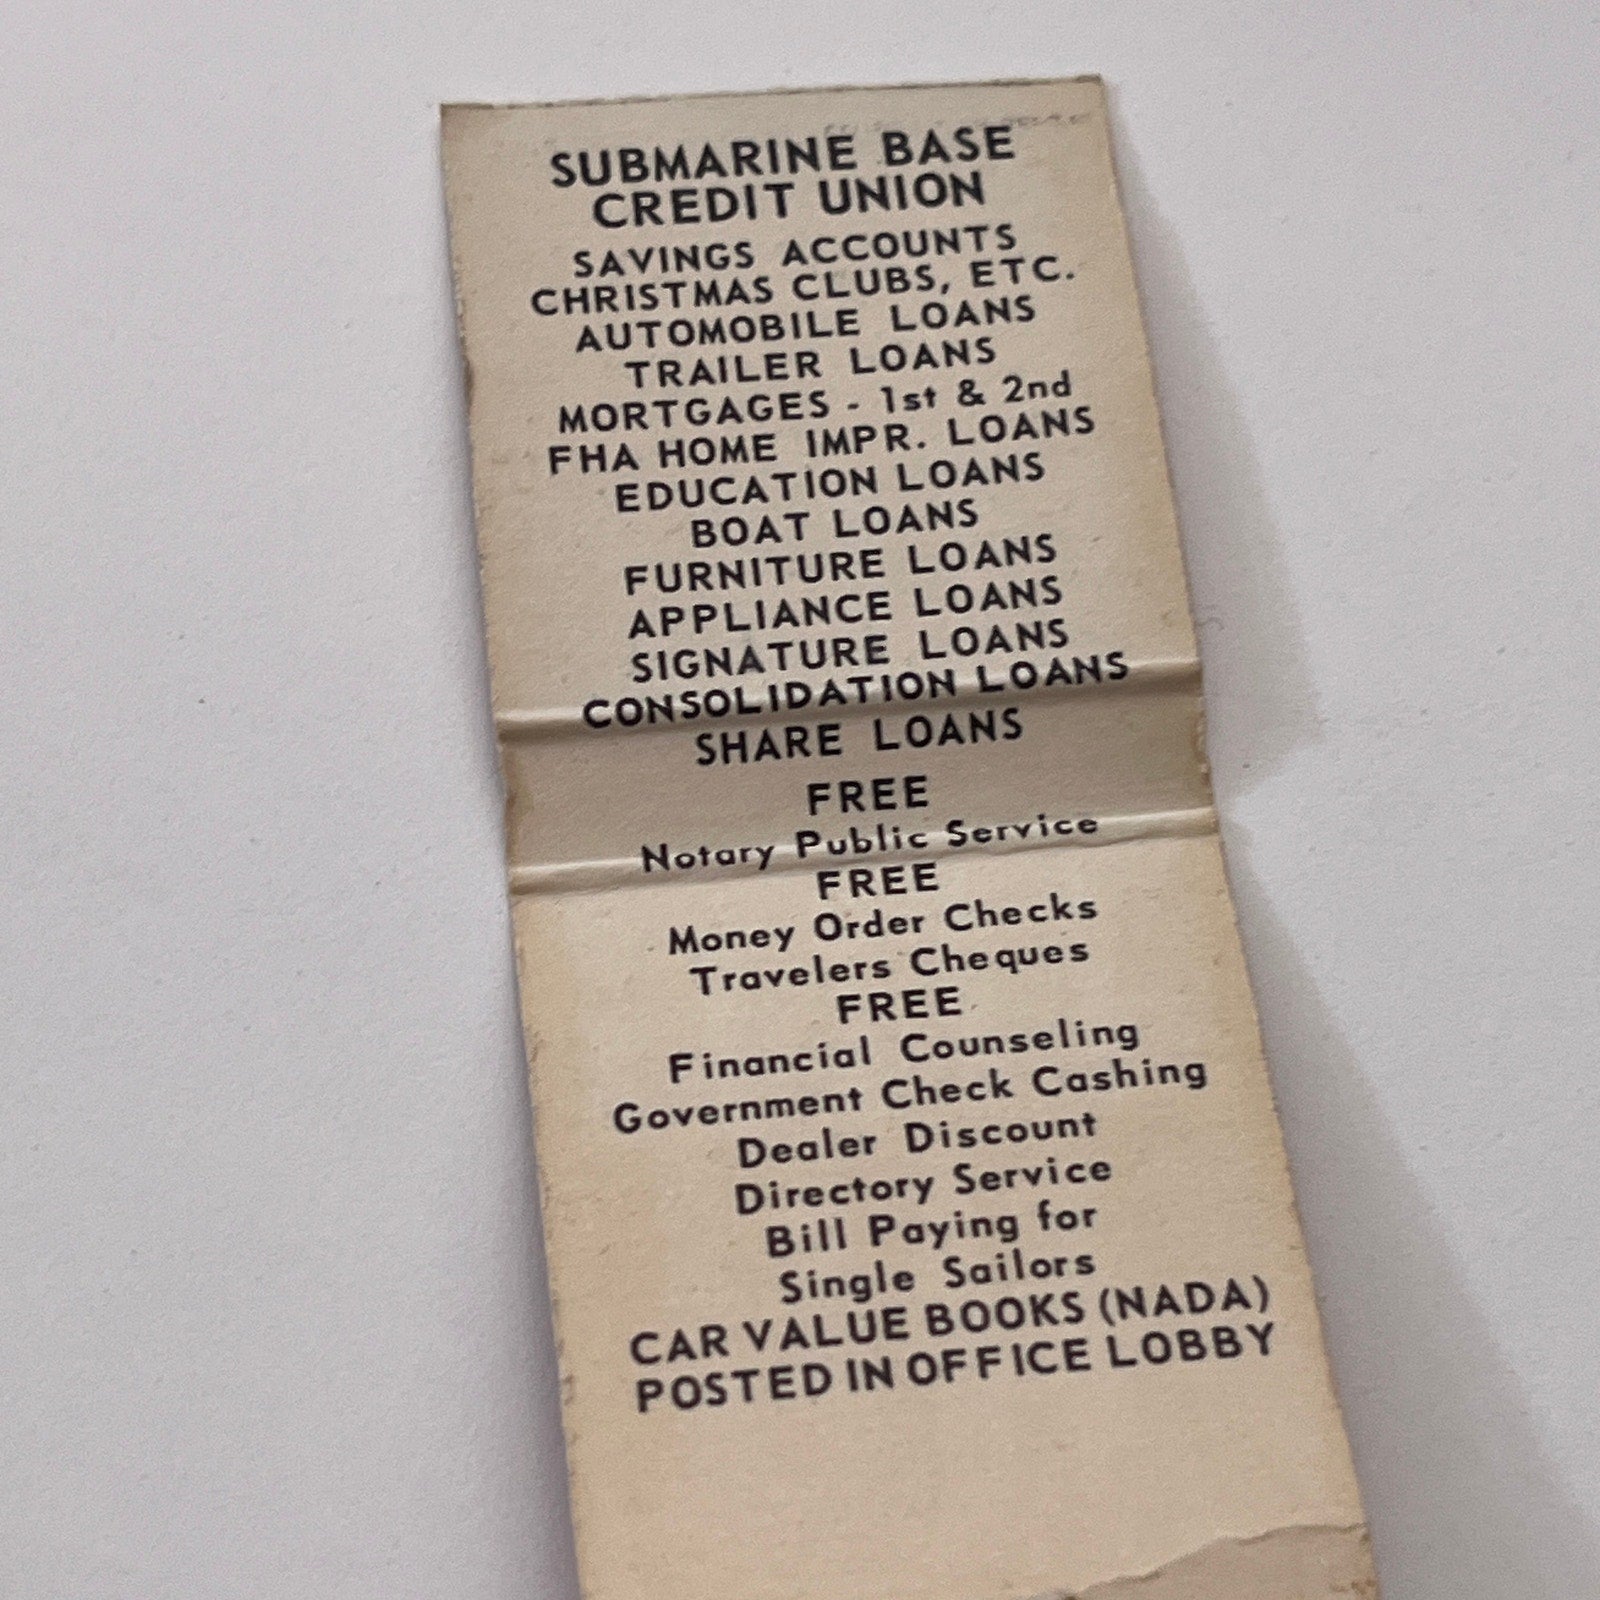 SUBMARINE BASE
CREDIT UNION
SAVINGS ACCOUNTS
CHRISTMAS CLUBS, ETC.
AUTOMOBILE LOANS
TRAILER LOANS
MORTGAGES - 1st & 2nd
FHA HOME IMPR. LOANS
EDUCATION LOANS
BOAT LOANS
FURNITURE LOANS
APPLIANCE LOANS
SIGNATURE LOANS
CONSOLIDATION LOANS
SHARE LOANS
FREE
Notary Public Service
FREE
Money Order Checks
Travelers Cheques
FREE
Financial Counseling
Government Check Cashing
Dealer Discount
Directory Service
Bill Paying for
Single Sailors
CAR VALUE BOOKS (NADA)
POSTED IN OFFICE LOBBY